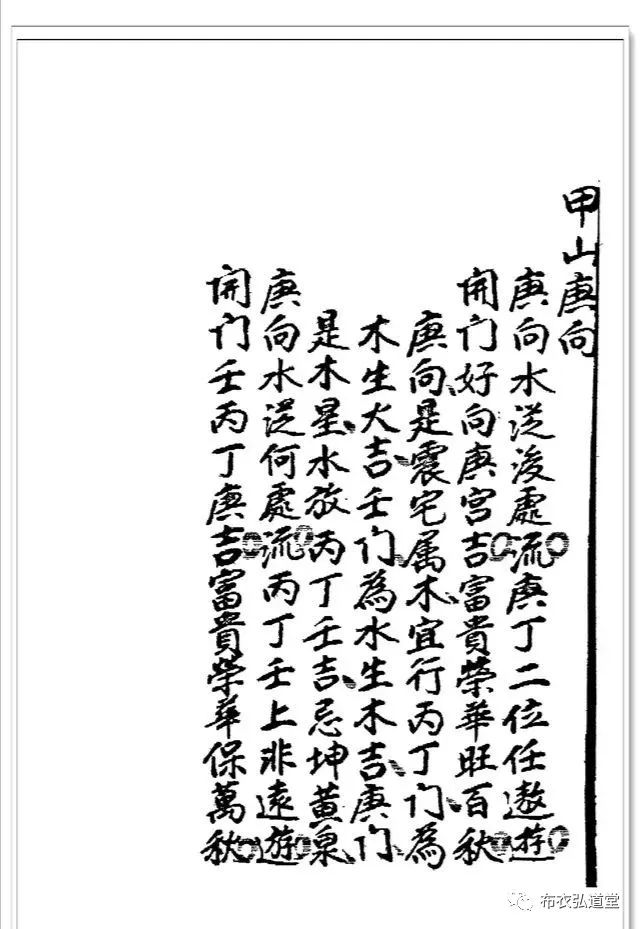 甲山庚向
庚向水從後處流。庚丁二位任遨遊。
開门好向庚宫吉。富貴榮華旺百秋。
庚向、是震宅属木、宜行丙丁门、為
木生大吉、壬门、為水生木吉、庚门、
是木星、水放丙丁壬吉、忌坤黄泉
庚向水從何處流。丙丁壬上非遠遊。
開门壬丙丁庚吉。富貴榮華保萬秋。
布衣弘道堂